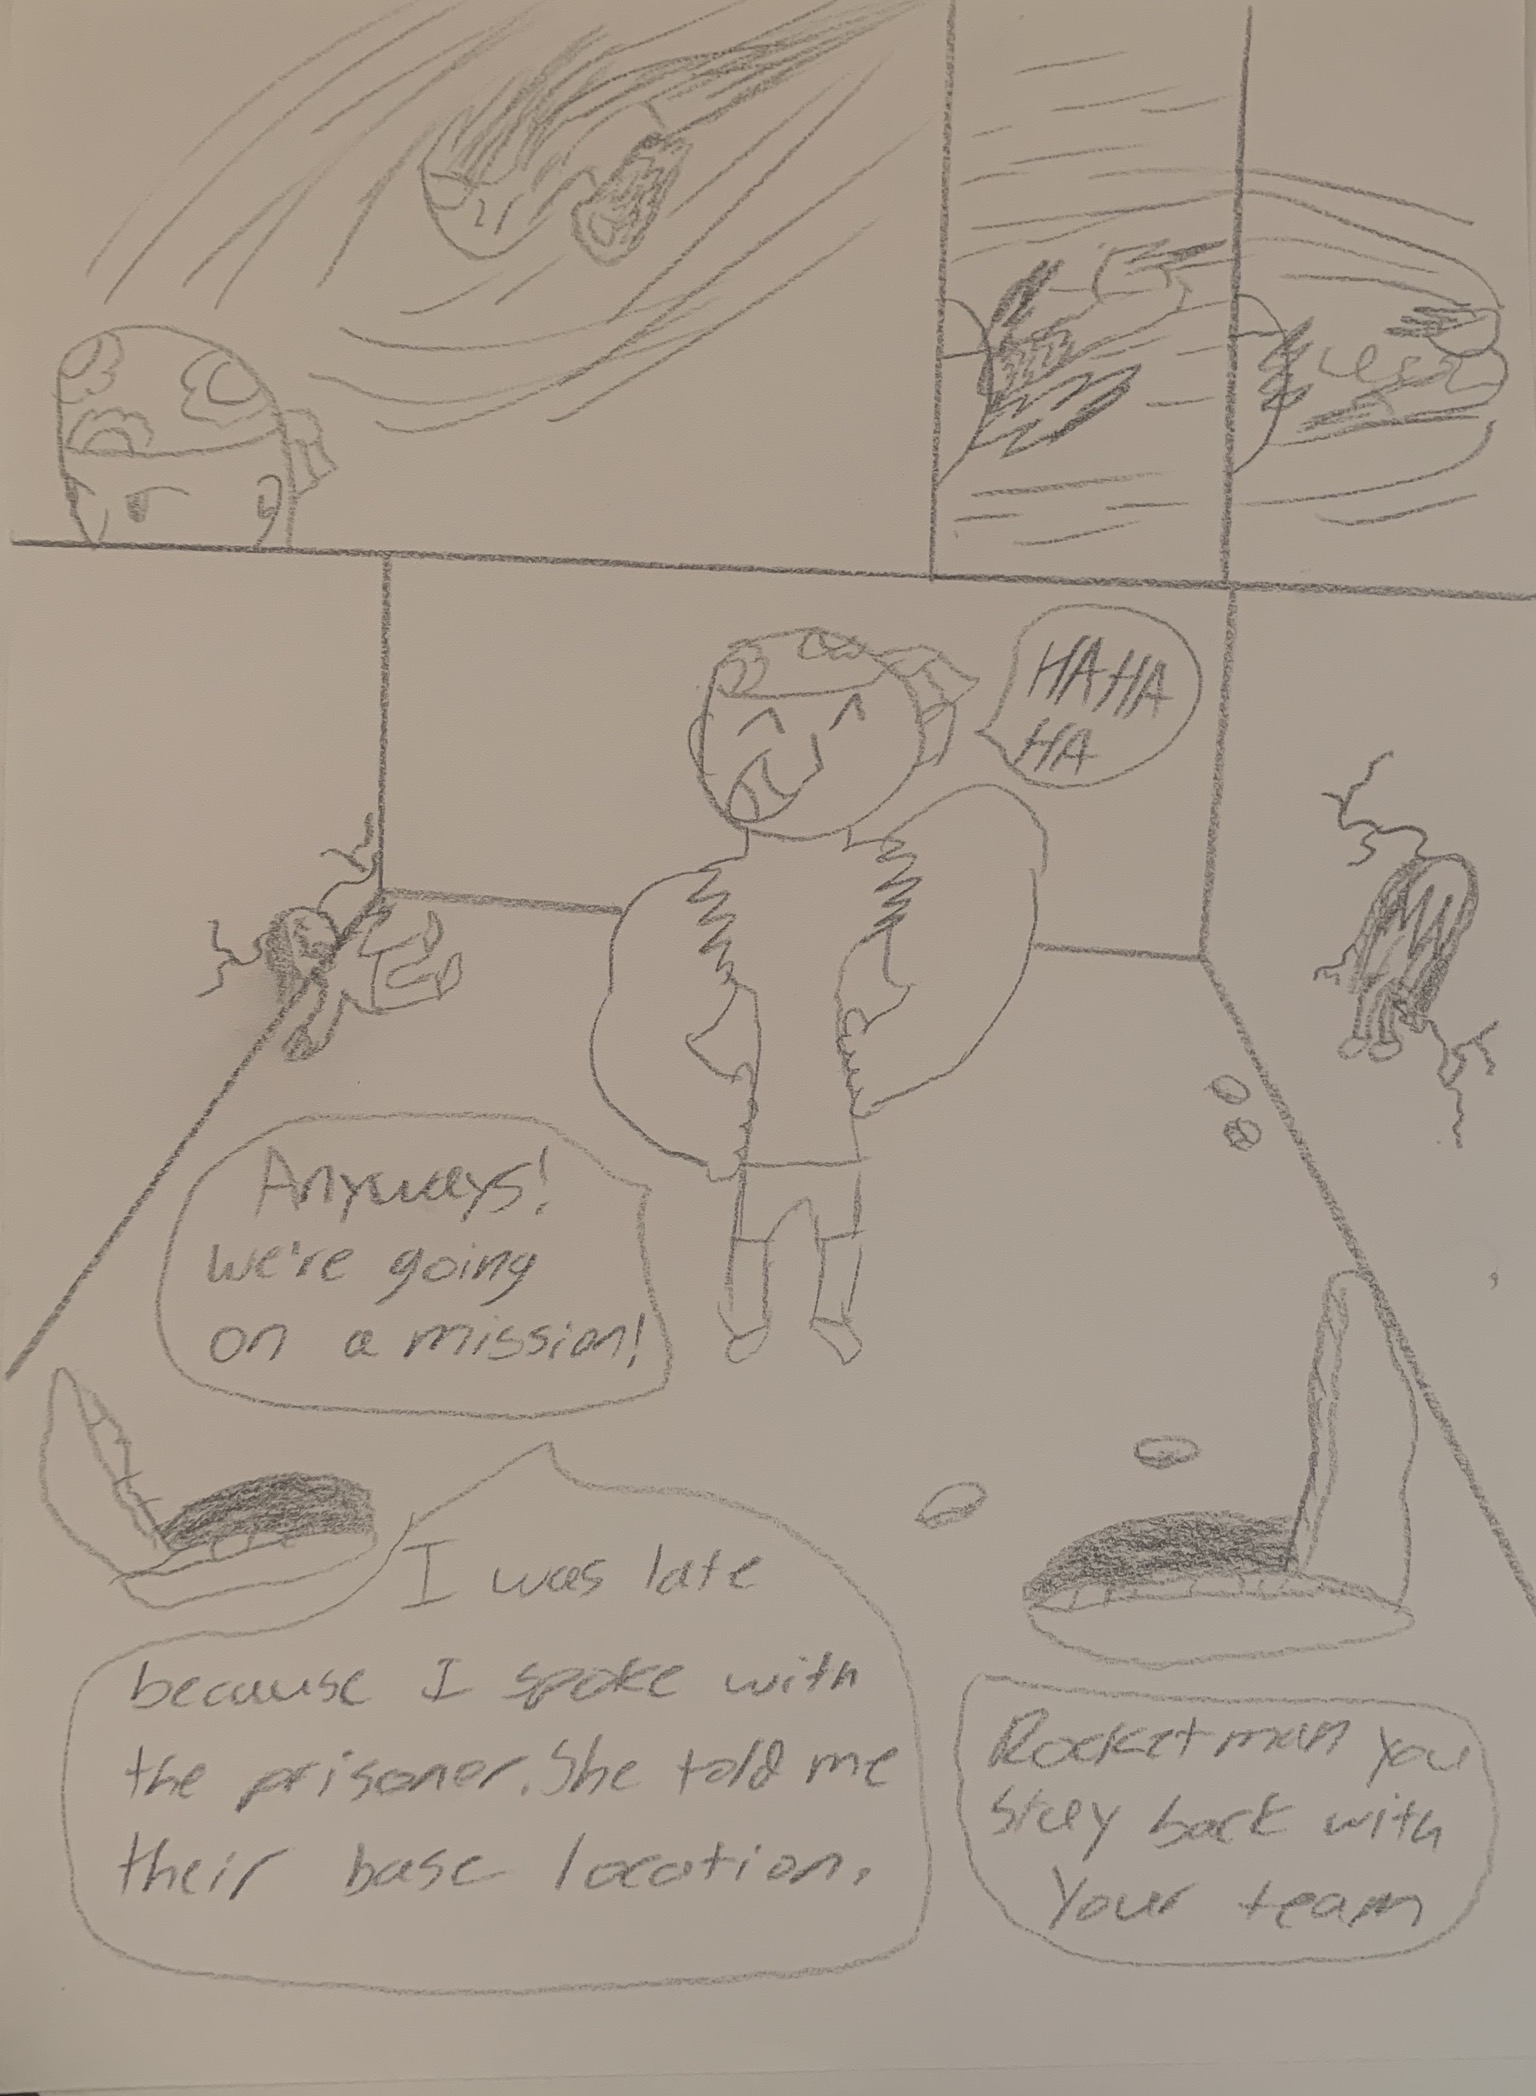 HAHA
HA
Anyways!
we're going
on a mission!
I was late
because I spoke with
the prisoner. She told me
their base location.
Rocketman you
stay back with
your team